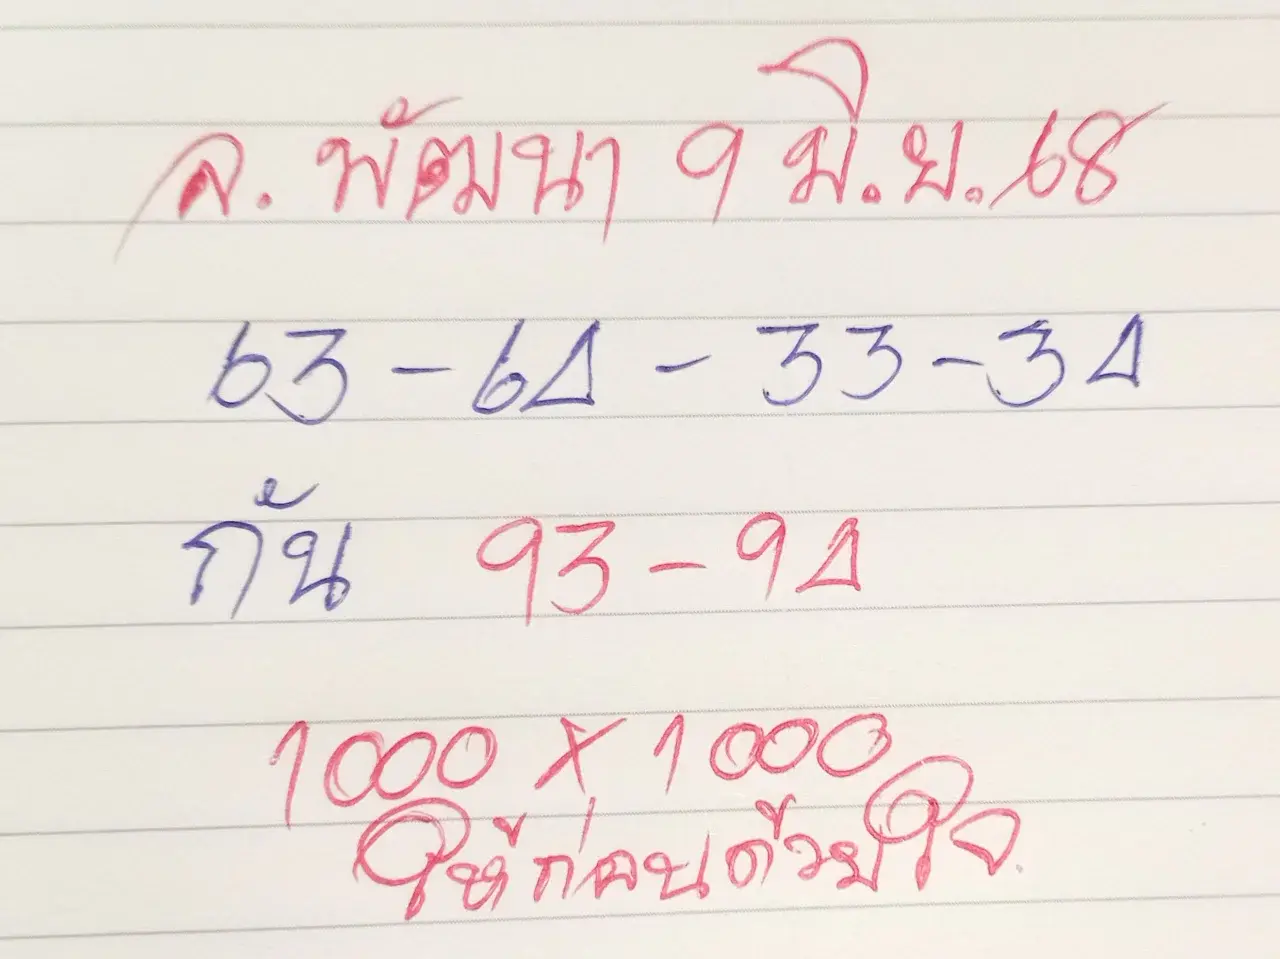 ล. พัฒนา 9 มิ.ย. 68
63 - 64 - 33 - 34
กัน 93 - 94
1000 X 1000
ให้ก่อนด้วยใจ